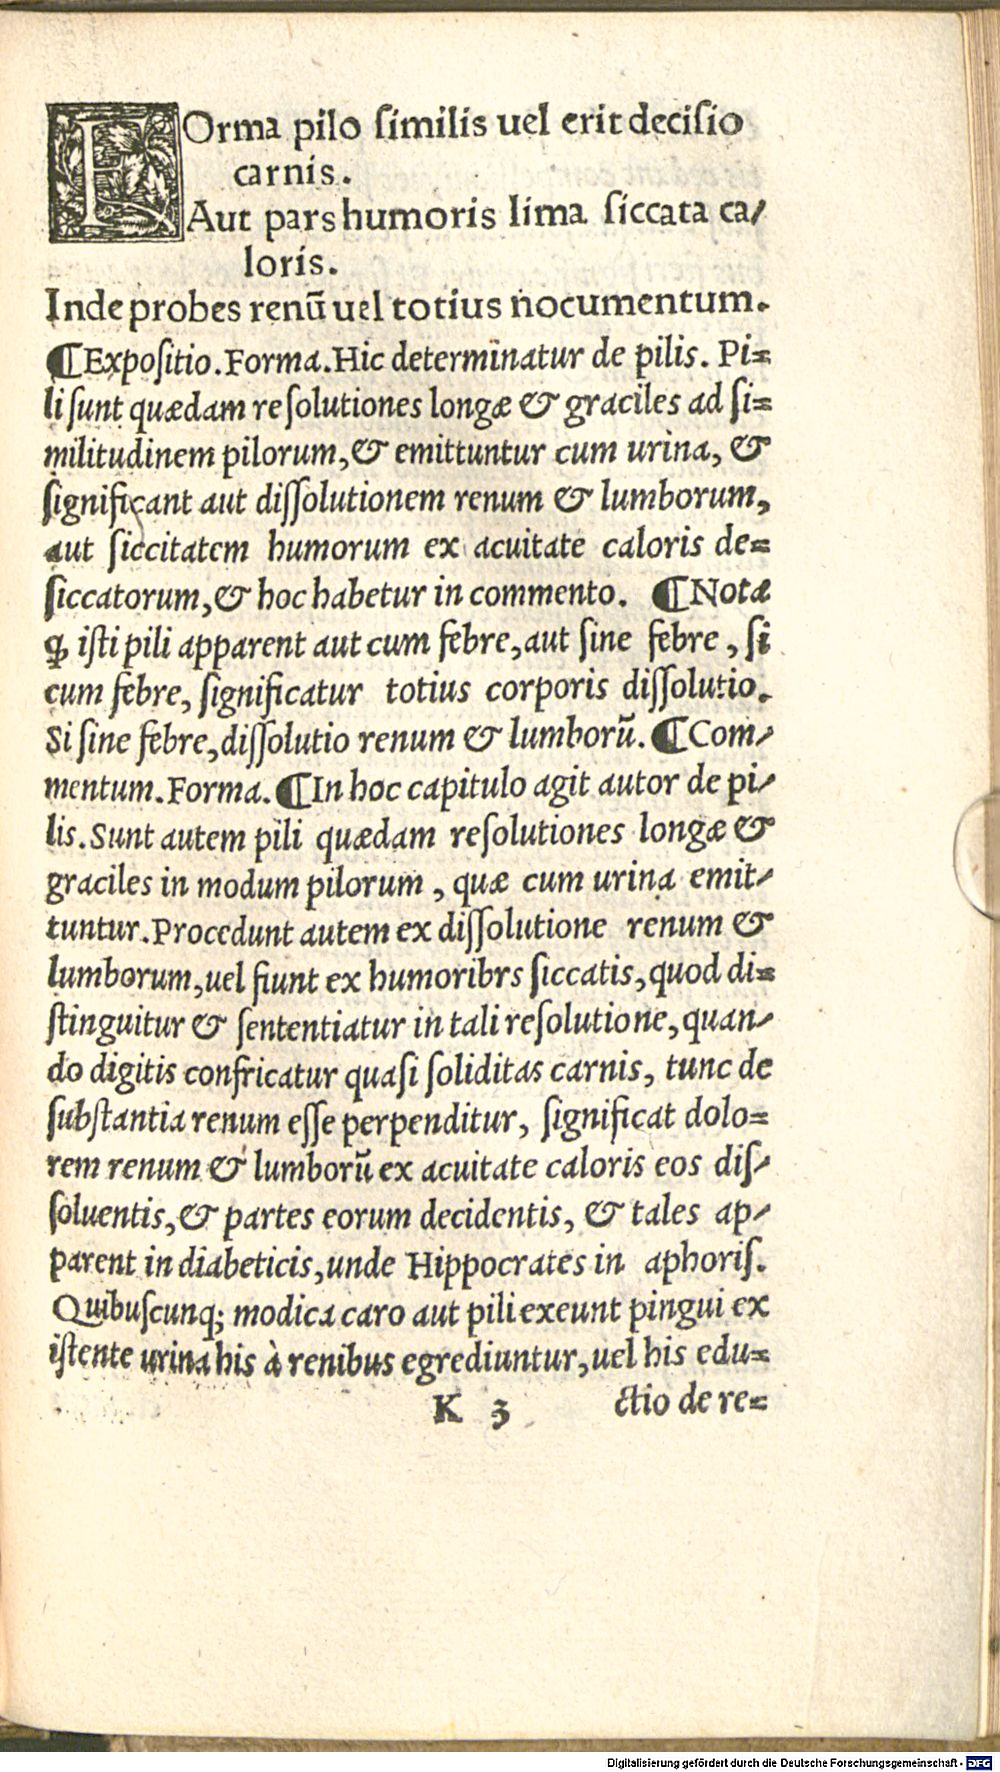 FOrma pilo ſimilis uel erit deciſio
carnis.
Aut pars humoris lima ſiccata ca/
loris.
Inde probes renũ uel totius nocumentum.
¶Expoſitio. Forma. Hic determinatur de pilis. Pi=
li ſunt quædam reſolutiones longæ & graciles ad ſi=
militudinem pilorum, & emittuntur cum urina, &
ſignificant aut diſſolutionem renum & lumborum,
aut ſiccitatem humorum ex acuitate caloris de=
ſiccatorum, & hoc habetur in commento. ¶Nota
ꝙ iſti pili apparent aut cum febre, aut ſine febre, ſi
cum febre, ſignificatur totius corporis diſſolutio.
Si ſine febre, diſſolutio renum & lumborũ. ¶Com/
mentum. Forma. ¶In hoc capitulo agit autor de pi/
lis. Sunt autem pili quædam reſolutiones longæ &
graciles in modum pilorum, quæ cum urina emit/
tuntur. Procedunt autem ex diſſolutione renum &
lumborum, uel fiunt ex humoribrs ſiccatis, quod di=
ſtinguitur & ſententiatur in tali reſolutione, quan/
do digitis confricatur quaſi ſoliditas carnis, tunc de
ſubſtantia renum eſſe perpenditur, ſignificat dolo=
rem renum & lumborũ ex acuitate caloris eos diſ/
ſoluentis, & partes eorum decidentis, & tales ap/
parent in diabeticis, unde Hippocrates in aphoriſ.
Quibuſcunq; modica caro aut pili exeunt pingui ex
iſtente urina his à renibus egrediuntur, uel his edu=
K 3 ctio de re=
Digitalisierung gefördert durch die Deutsche Forschungsgemeinschaft - DFG